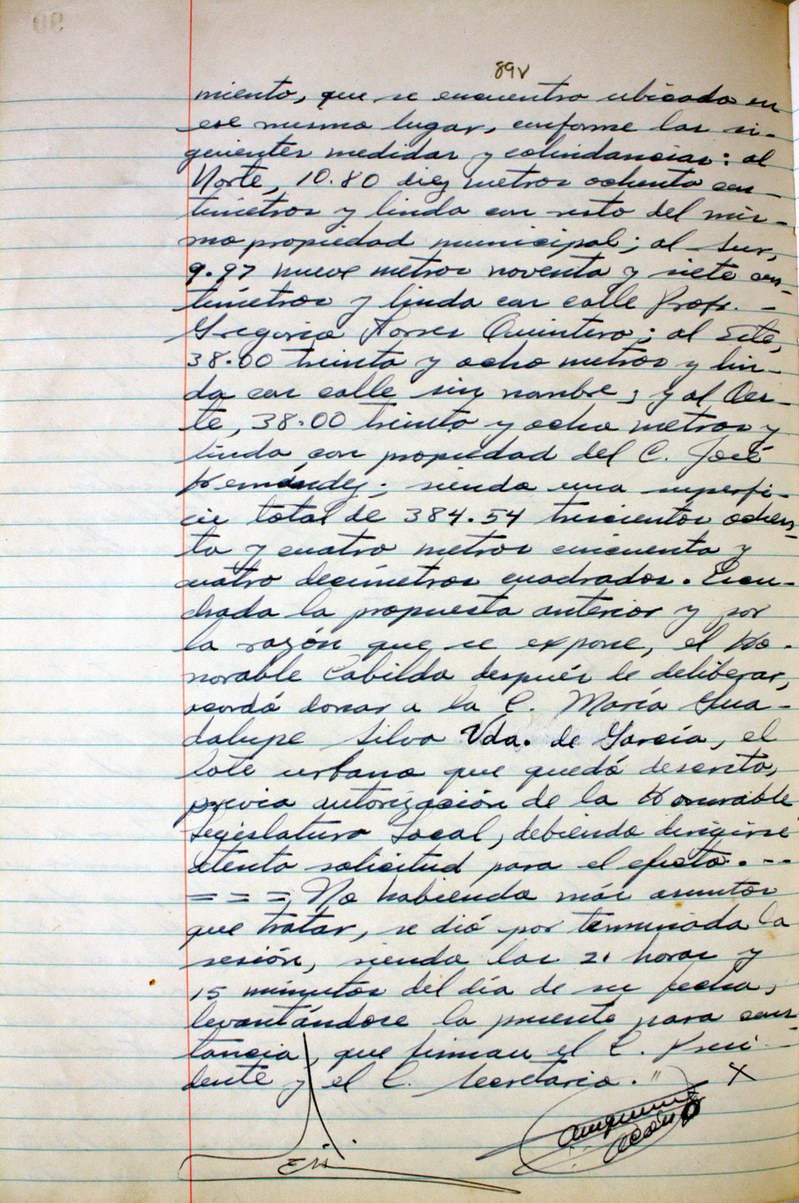 89v
miento, que se encuentra ubicado en
ese mismo lugar, conforme las si-
guientes medidas y colindancias: al
Norte, 10.80 diez metros ochenta cen-
tímetros y linda con resto del mis-
mo propiedad municipal; al Sur,
9.97 nueve metros noventa y siete cen-
tímetros y linda con calle Profr. -
Gregorio Torres Quintero; al Este,
38.00 treinta y ocho metros y lin-
da con calle sin nombre; y al Oes-
te, 38.00 treinta y ocho metros y
linda con propiedad del C. José
Hernández; siendo una superfi-
cie total de 384.54 trescientos ochen-
ta y cuatro metros cincuenta y
cuatro decímetros cuadrados. Escu-
chada la propuesta anterior y por
la razón que se expone, el Ho-
norable Cabildo después de deliberar,
acordó donar a la C. María Gua-
dalupe Silva Vda. de García, el
lote urbano que quedó descrito,
previa autorización de la Honorable
Legislatura Local, debiendo dirigirse
atenta solicitud para el efecto. --
= = = No habiendo más asuntos
que tratar, se dió por terminada la
sesión, siendo las 21 horas y
15 minutos del día de su fecha,
levantándose la presente para cons-
tancia, que firman el C. Presi-
dente y el C. Secretario. " X